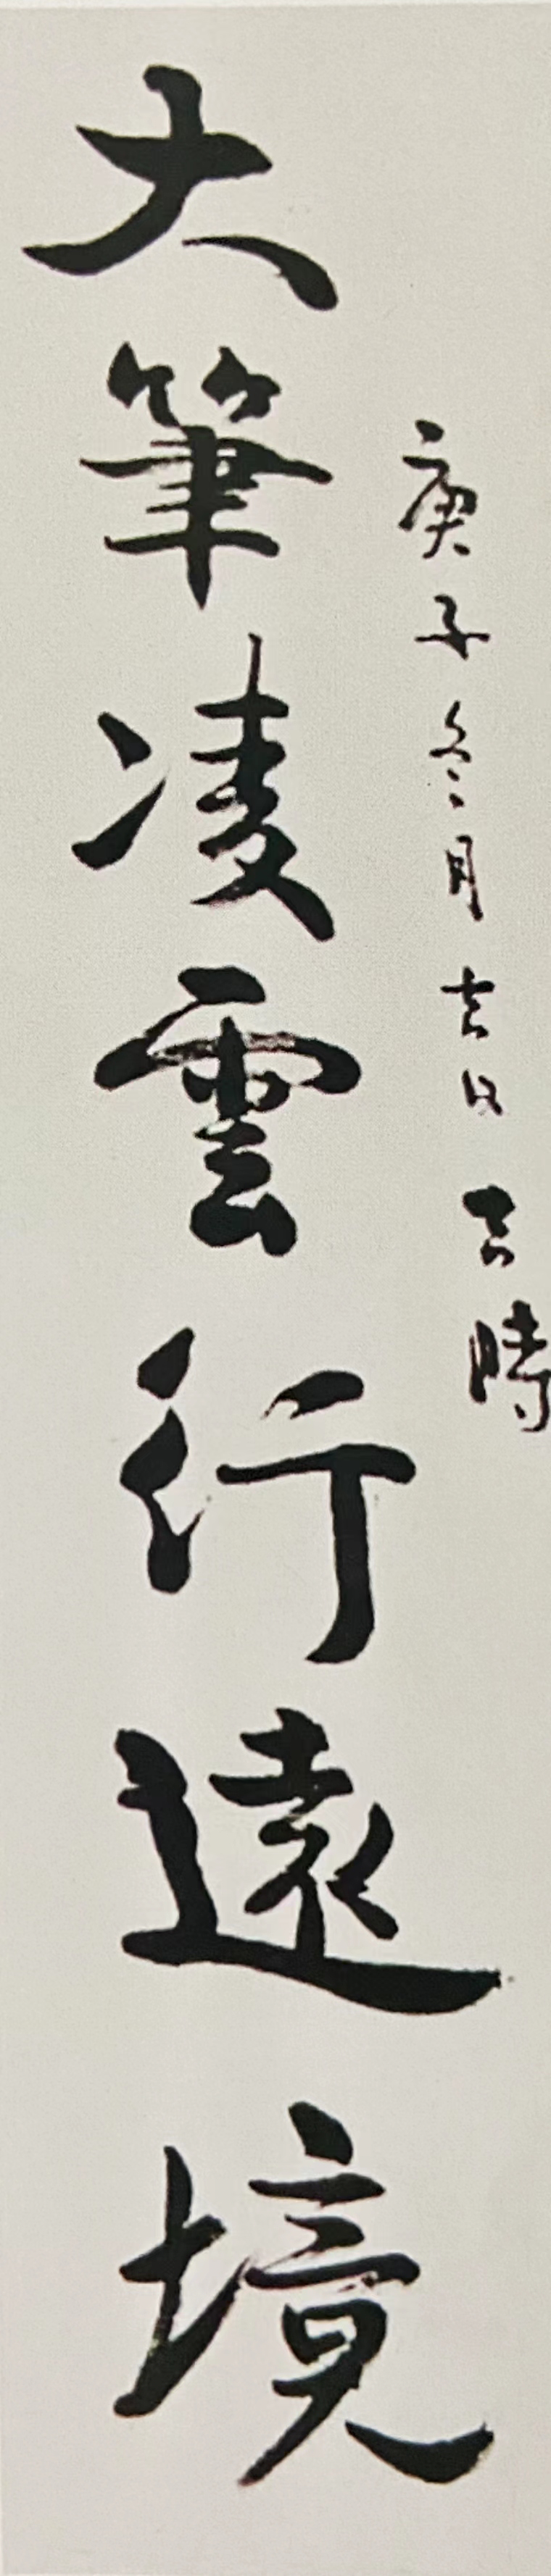 庚子冬月吉日吉時
大筆凌雲行遠境